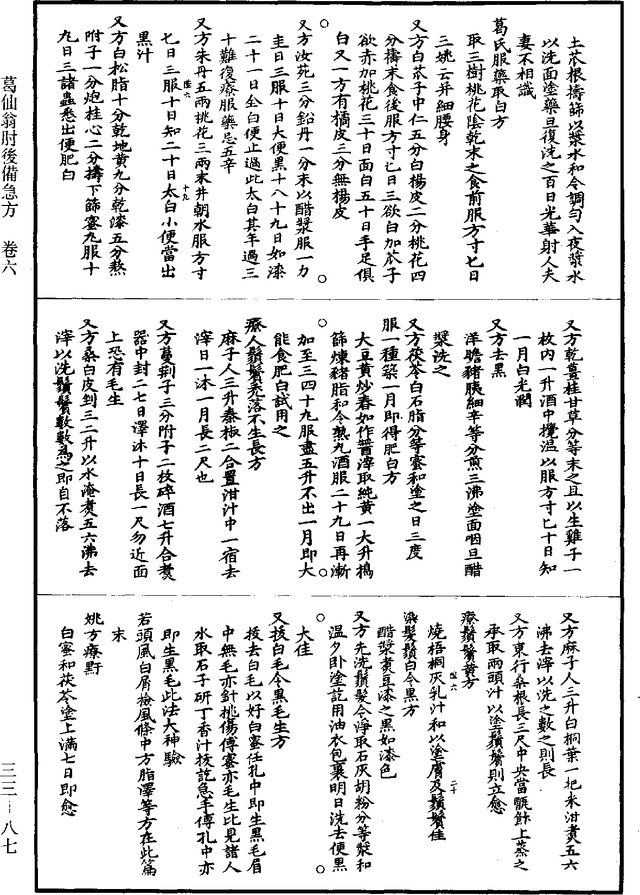 葛仙翁肘後備急方　卷六
土苽根擣篩以漿水和令調勻入夜漿水
以洗面塗藥旦復洗之百日光華射人夫
妻不相識
葛氏服藥取白方
取三樹桃花陰乾末之食前服方寸匕日
三姚云并細腰身
又方白苽子中仁五分白楊皮二分桃花四
分擣末食後服方寸匕日三欲白加苽子
欲赤加桃花三十日面白五十日手足俱
白又一方有橘皮三分無楊皮
又方汝苑三分鉛丹一分末以醋漿服一刀
圭日三服十日大便黑十八十九日如漆
二十一日全白便止過此太白其年過三
十難復療服藥忌五辛
又方朱丹五兩桃花三兩末井朝水服方寸
匕日三服十日知二十日太白小便當出
黑汁
又方白松脂十分乾地黃九分乾漆五分熬
附子一分炮桂心二分擣下篩蜜丸服十
九日三諸蟲悉出便肥白
又方乾薑桂甘草分等末之且以生雞子一
枚內一升酒中攪溫以服方寸匕十日知
一月白光潤
又方去黑
羊膽豬胰細辛等分煎三沸塗面咽旦醋
漿洗之
又方茯苓白石脂分等蜜和塗之日三度
服一種藥一月即得肥白方
大豆黃炒舂如作醬滓取純黃一大升搗
篩煉豬脂和令熟丸酒服二十九日再漸
加至三四十九服盡五升不出一月即大
能食肥白試用之
療人鬚鬢禿落不生長方
麻子人三升秦椒二合置泔汁中一宿去
滓日一沐一月長二尺也
又方蔓荆子三分附子二枚碎酒七升合煑
器中封二七日澤沐十日長一尺勿近面
上恐有毛生
又方桑白皮剉三二升以水淹煑五六沸去
滓以洗鬚鬢數數為之即自不落
又方麻子人三升白桐葉一把米泔煑五六
沸去滓以洗之數之則長
又方東行桑根長三尺中央當甑飰上蒸之
承取兩頭汁以塗鬚鬢則立愈
療鬚鬢黃方
燒梧桐灰乳汁和以塗膚及鬚鬢佳
染髮鬚白令黑方
醋漿煑豆漆之黑如漆色
又方先洗鬚髮令淨取石灰胡粉分等漿和
溫夕卧塗訖用油衣包裹明日洗去便黑
大佳
又拔白毛令黑毛生方
拔去白毛以好白蜜任孔中即生黑毛眉
中無毛亦針挑傷傅蜜亦毛生比見諸人
水取石子研丁香汁拔訖急手傅孔中亦
即生黑毛此法大神驗
若頭風白屑檢風條中方脂澤等方在此篇
末
姚方療䵟
白蜜和茯苓塗上滿七日即愈
三三－八七